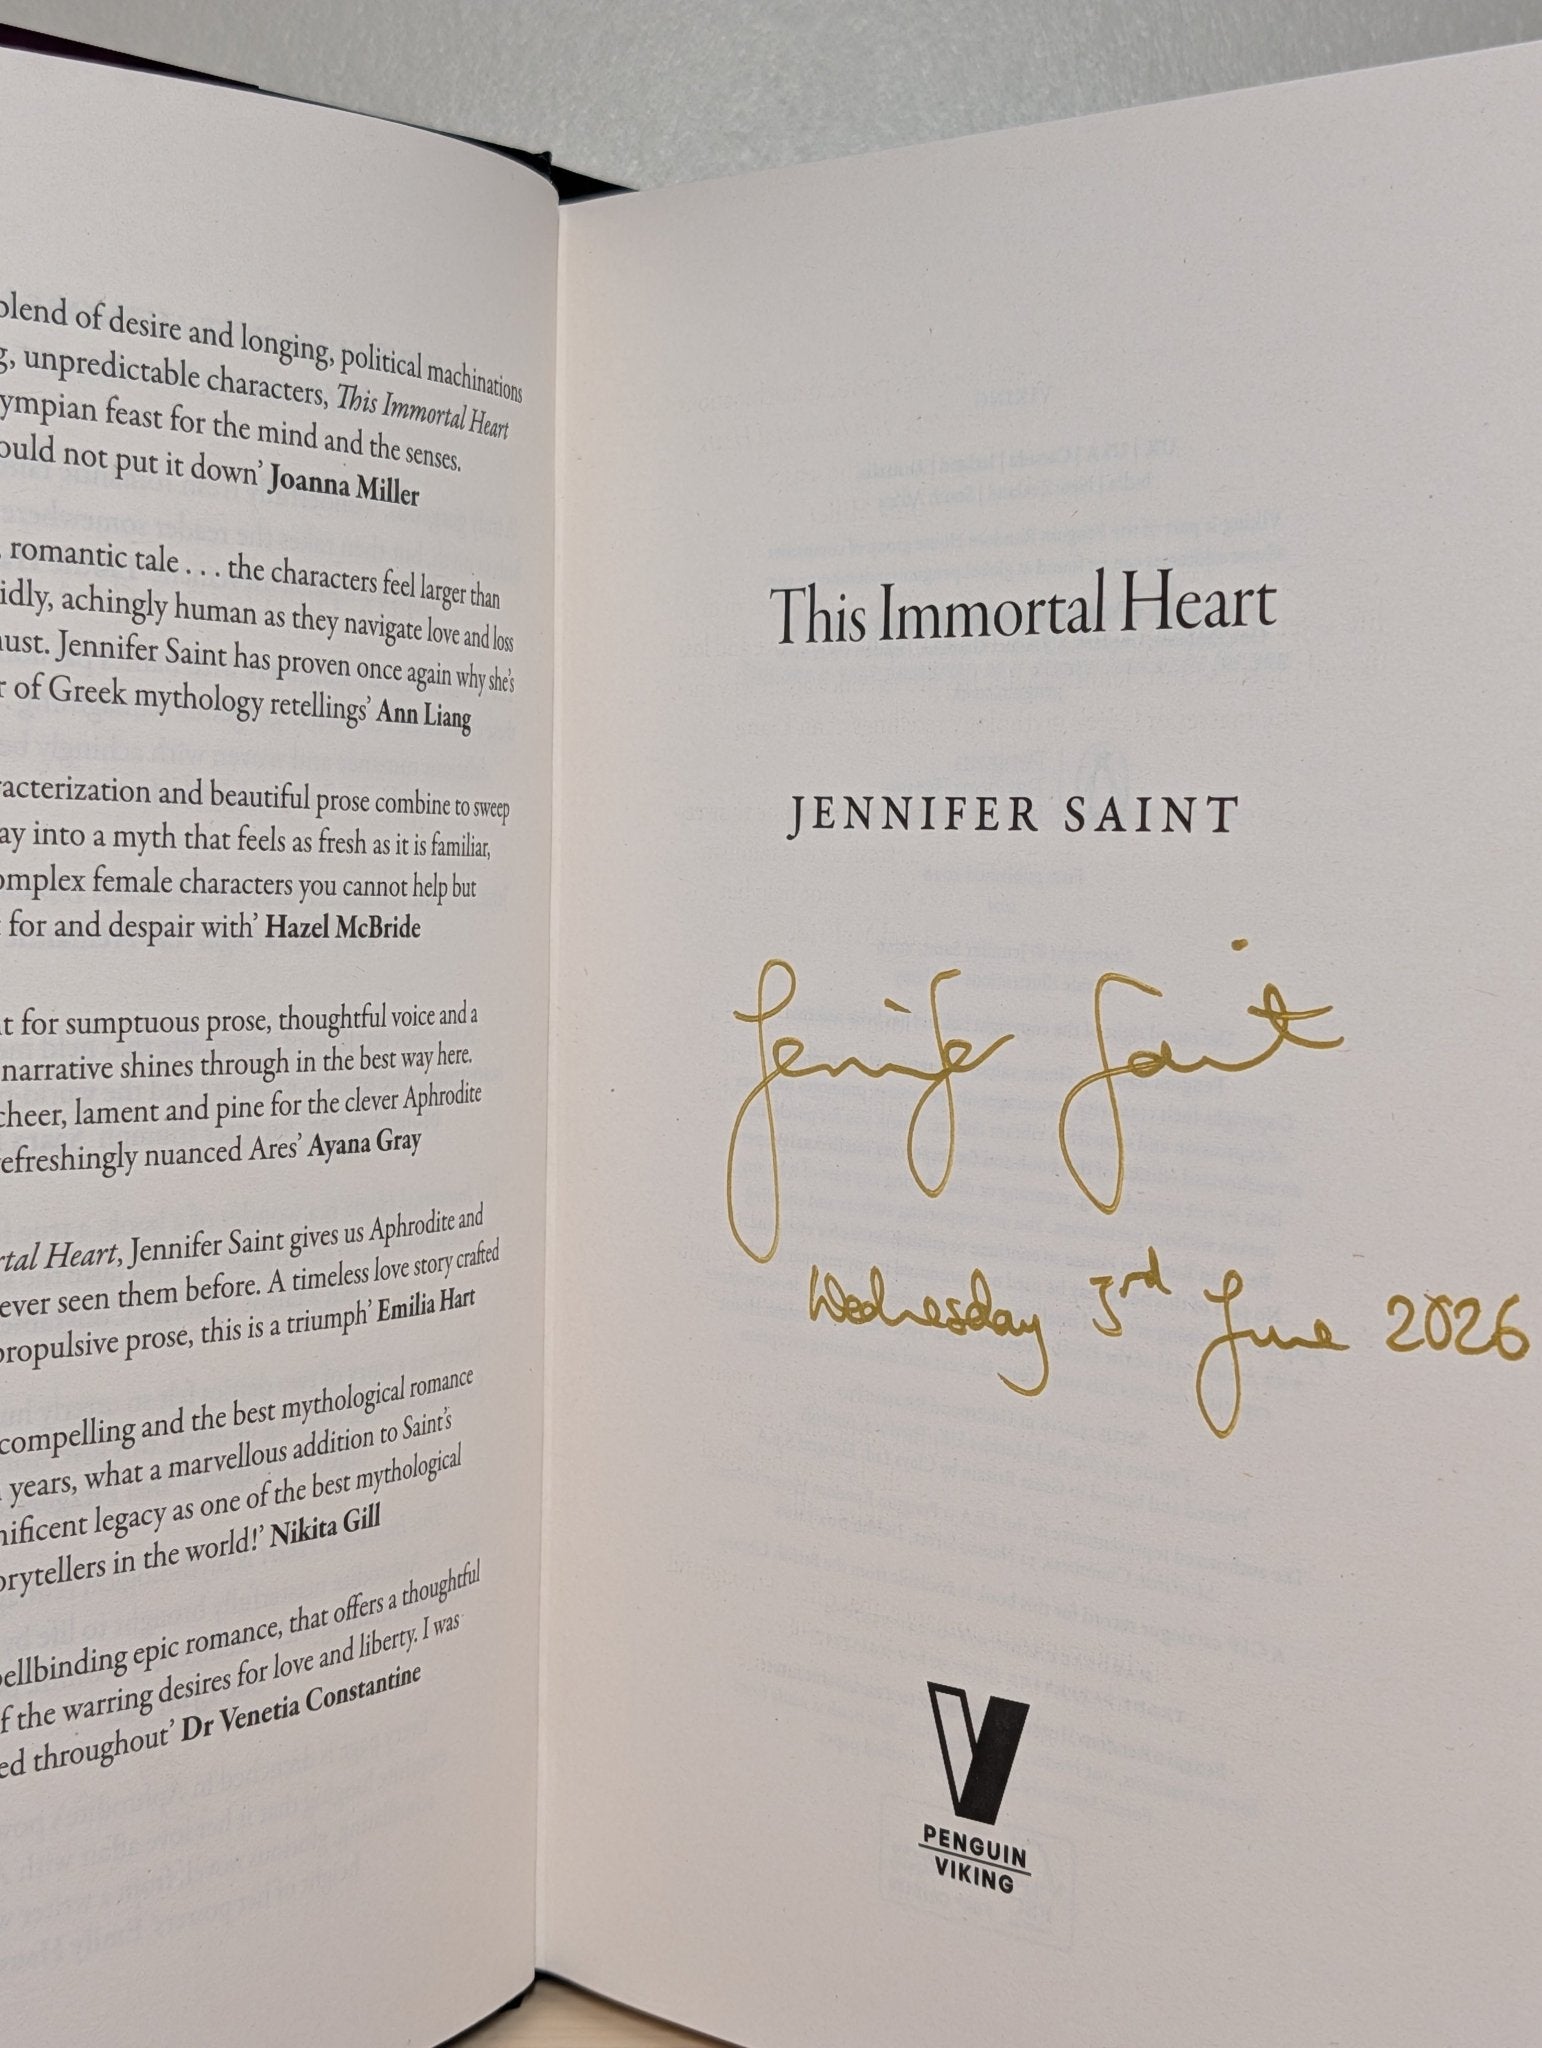 blend of desire and longing, political machinations
, unpredictable characters, This Immortal Heart
ympian feast for the mind and the senses.
ould not put it down’ Joanna Miller
, romantic tale . . . the characters feel larger than
idly, achingly human as they navigate love and loss
ust. Jennifer Saint has proven once again why she’s
r of Greek mythology retellings’ Ann Liang
racterization and beautiful prose combine to sweep
ay into a myth that feels as fresh as it is familiar,
omplex female characters you cannot help but
t for and despair with’ Hazel McBride
t for sumptuous prose, thoughtful voice and a
narrative shines through in the best way here.
cheer, lament and pine for the clever Aphrodite
refreshingly nuanced Ares’ Ayana Gray
rtal Heart, Jennifer Saint gives us Aphrodite and
ever seen them before. A timeless love story crafted
propulsive prose, this is a triumph’ Emilia Hart
compelling and the best mythological romance
years, what a marvellous addition to Saint’s
nificent legacy as one of the best mythological
orytellers in the world!’ Nikita Gill
pellbinding epic romance, that offers a thoughtful
f the warring desires for love and liberty. I was
ed throughout’ Dr Venetia Constantine
This Immortal Heart
JENNIFER SAINT
Jennifer Saint
Wednesday 3rd June 2026
PENGUIN
VIKING